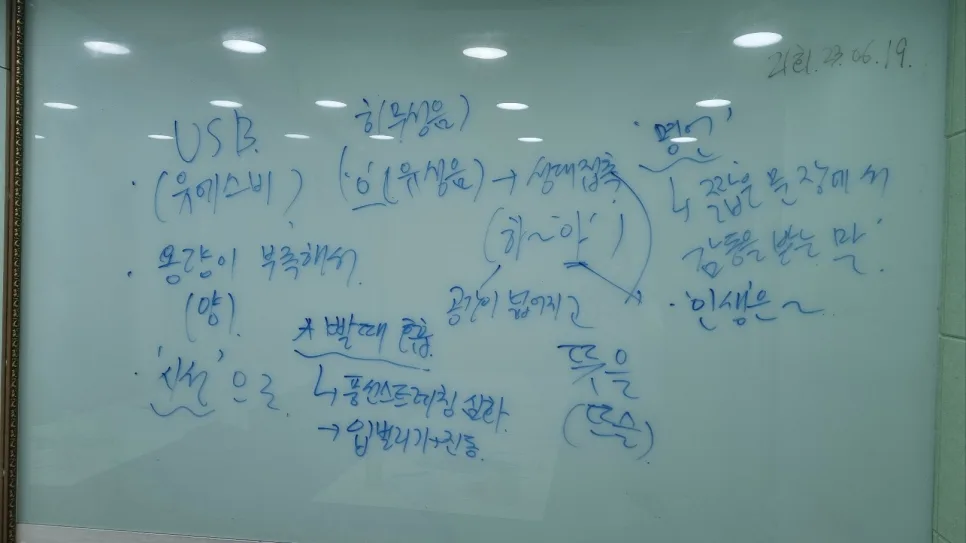 21회. 23. 06. 19.
USB.
· (유에스비)
· 용량이 부족해서
(양).
· '시선'으로.
ㅎ(무성음)
(·ㅇ(유성음) → 성대접촉
(하~아')
공간이 넓어지고
* 빨때
↳ 풍선스트레칭
→ 입벌리기+진동.
뜻을
(뜨슬)
'명언'
↳ 짧은 문장에서
감동을 받는 말.
· '인생'은~